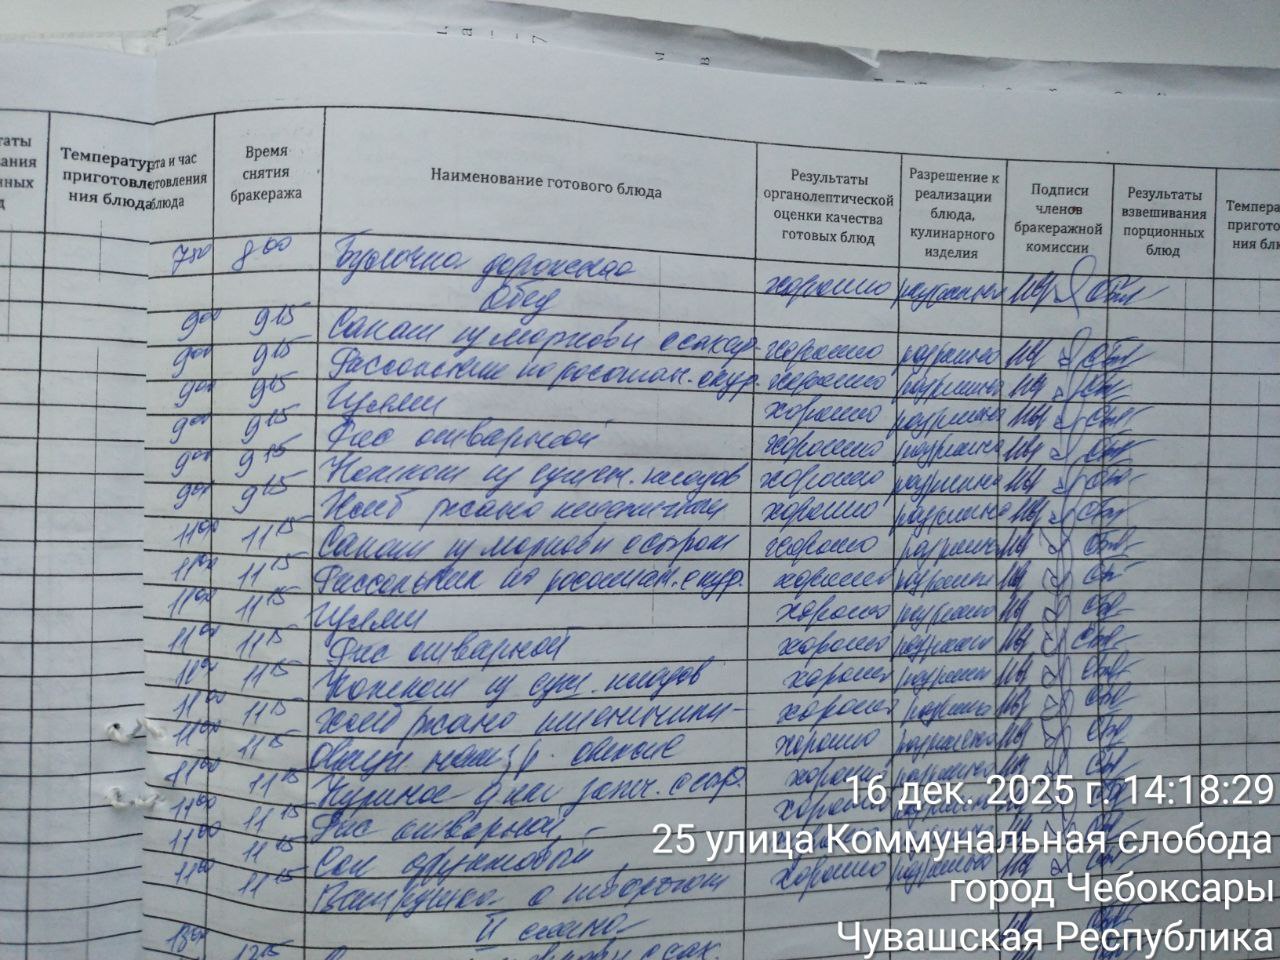 Температур
приготовле
ния блюда
та и час
отовления
блюда
Время
снятия
бракеража
Наименование готового блюда
Результаты
органолептической
оценки качества
готовых блюд
Разрешение к
реализации
блюда,
кулинарного
изделия
Подписи
членов
бракеражной
комиссии
Результаты
взвешивания
порционных
блюд
Темпера
пригото
ния бл
750 8 00 Булочка дорожная хорошо
Обед
900 915 Салат из моркови с сахар. хорошо разрешено
900 915 Рассольник по россиан. с кур. хорошо разрешено
900 915 Гуляш хорошо разрешено
900 915 Рис отварной хорошо разрешено
900 915 Компот из сушен. плодов хорошо разрешено
900 915 Хлеб ржано пшеничный хорошо разрешено
1100 1115 Салат из моркови с сыром хорошо
1100 1115 Рассольник по россиан. с кур. хорошо
1100 1115 Гуляш хорошо
1100 1115 Рис отварной хорошо
1100 1115 Компот из суш. плодов хорошо
1100 1115 Хлеб ржано пшеничный хорошо
1100 1115 Овощи нат. свежие хорошо разрешено
1100 1115 Куриное запеч. с сыр. хорошо
1100 1115 Рис отварной
1100 1115 Сок фруктовый
1100 1115 Ватрушка с творогом хорошо
II смена
1215
16 дек. 2025 г. 14:18:29
25 улица Коммунальная слобода
город Чебоксары
Чувашская Республика